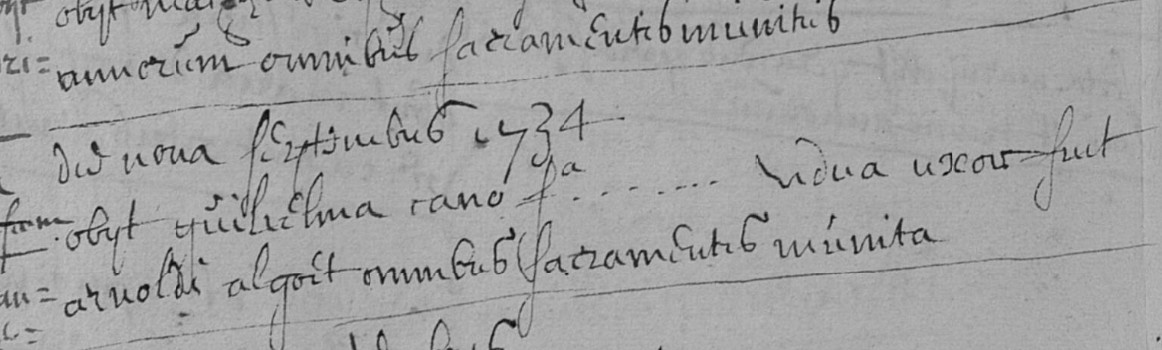 obyt
annorum omnibus sacramentis munitus
die nona septembris 1734
obyt guilielma cano fa ....... vidua uxor fuit
arnoldi algoit omnibus sacramentis munita